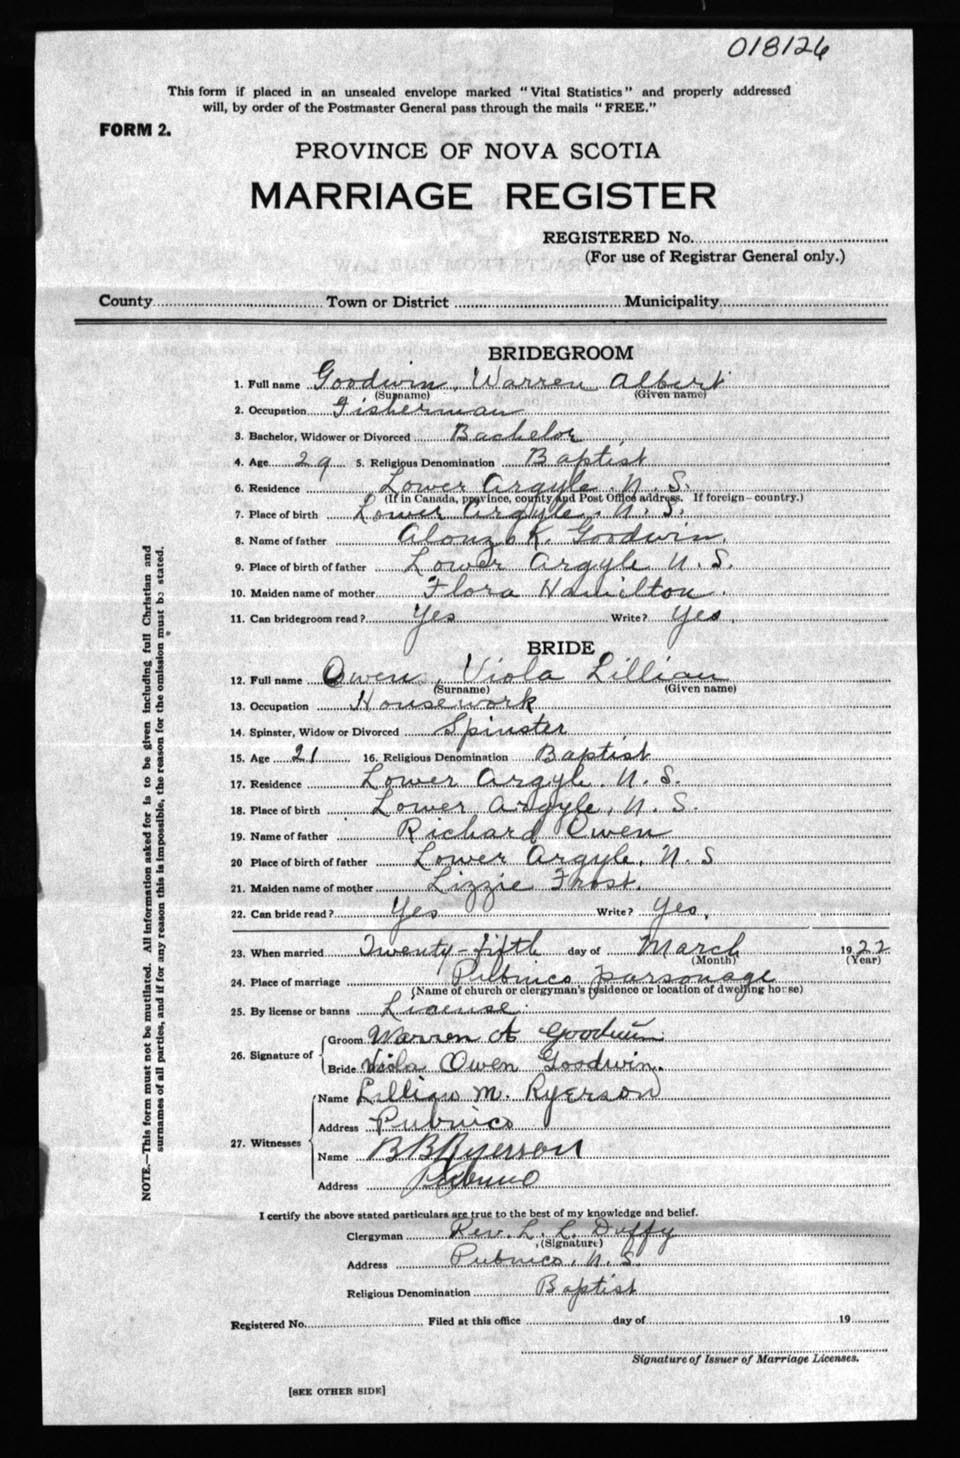 018126
This form if placed in an unsealed envelope marked "Vital Statistics" and properly addressed
will, by order of the Postmaster General pass through the mails "FREE."
FORM 2.
PROVINCE OF NOVA SCOTIA
MARRIAGE REGISTER
REGISTERED No.
(For use of Registrar General only.)
County Town or District Municipality
BRIDEGROOM
1. Full name Goodwin, Warren Albert
(Surname) (Given name)
2. Occupation Fisherman
3. Bachelor, Widower or Divorced Bachelor
4. Age 29 5. Religious Denomination Baptist
6. Residence Lower Argyle, N. S.
(If in Canada, province, county and Post Office address. If foreign—country.)
7. Place of birth Lower Argyle, N. S.
8. Name of father Alonzo K. Goodwin.
9. Place of father Lower Argyle N. S.
10. Maiden name of mother Flora Hamilton.
11. Can bridegroom read? Yes Write? Yes.
BRIDE
12. Full name Owen, Viola Lillian
(Surname) (Given name)
13. Occupation Housework
14. Spinster, Widow or Divorced Spinster
15. Age 21 16. Religious Denomination Baptist
17. Residence Lower Argyle, N. S.
18. Place of birth Lower Argyle, N. S.
19. Name of father Richard Owen
20 Place of birth of father Lower Argyle, N. S
21. Maiden name of mother Lizzie Frost.
22. Can bride read? Yes Write? Yes,
23. When married Twenty-fifth day of March 1922
(Month) (Year)
24. Place of marriage Pubnico parsonage
(Name of church or clergyman's residence or location of dwelling house)
25. By license or banns License.
26. Signature of Groom Warren A Goodwin
Bride Viola Owen Goodwin.
27. Witnesses Name Lillian M. Ryerson
Address Pubnico
Name B B Ryerson
Address Pubnico
I certify the above stated particulars are true to the best of my knowledge and belief.
Clergyman Rev. L. L. Duffy
(Signature)
Address Pubnico, N. S.
Religious Denomination Baptist
Registered No. Filed at this office day of 19
Signature of Issuer of Marriage Licenses.
[SEE OTHER SIDE]
NOTE.—This form must not be mutilated. All information asked for is to be given including full Christian and
surnames of all parties, and if for any reason this is impossible, the reason for the omission must be stated.